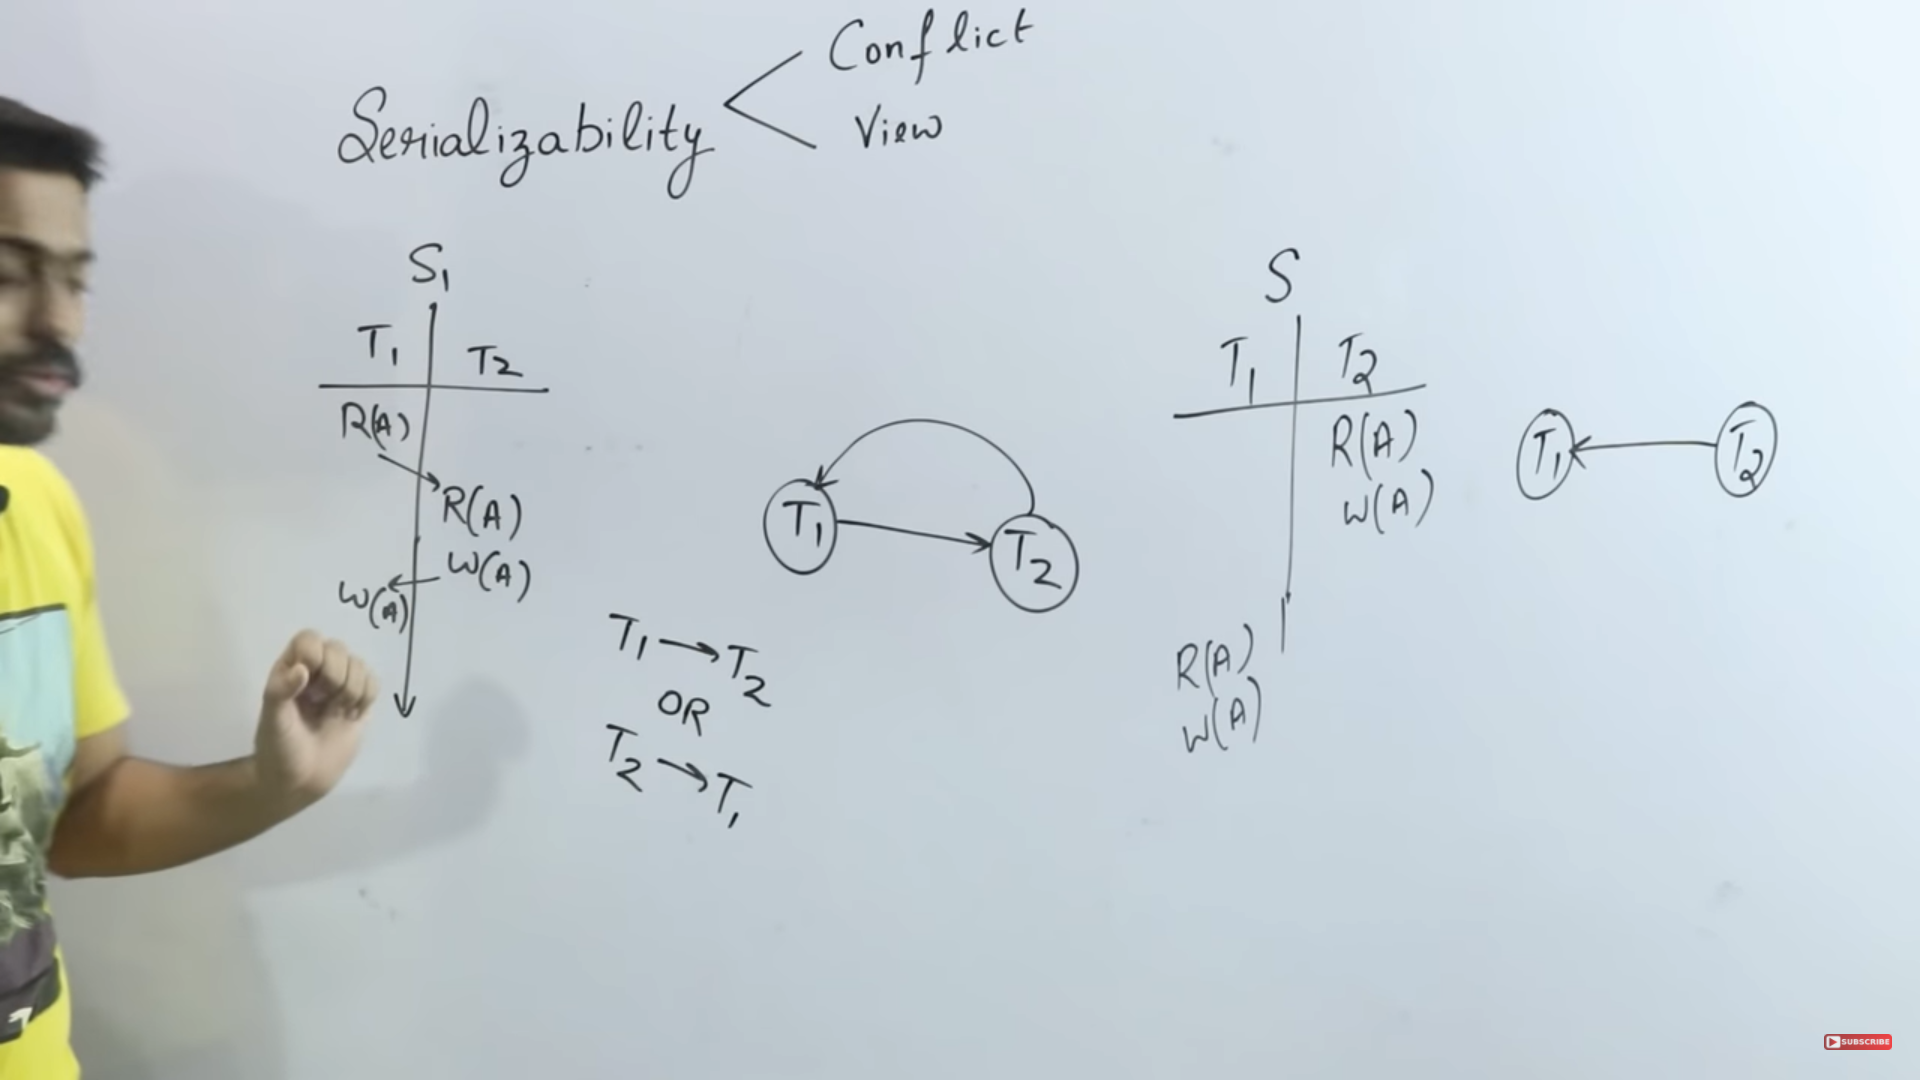 Serializability
Conflict
View
S1
T1 T2
R(A)
R(A)
W(A)
W(A)
T1 → T2
T1 → T2
OR
T2 → T1
S
T1 T2
R(A)
W(A)
R(A)
W(A)
T1 ← T2
SUBSCRIBE